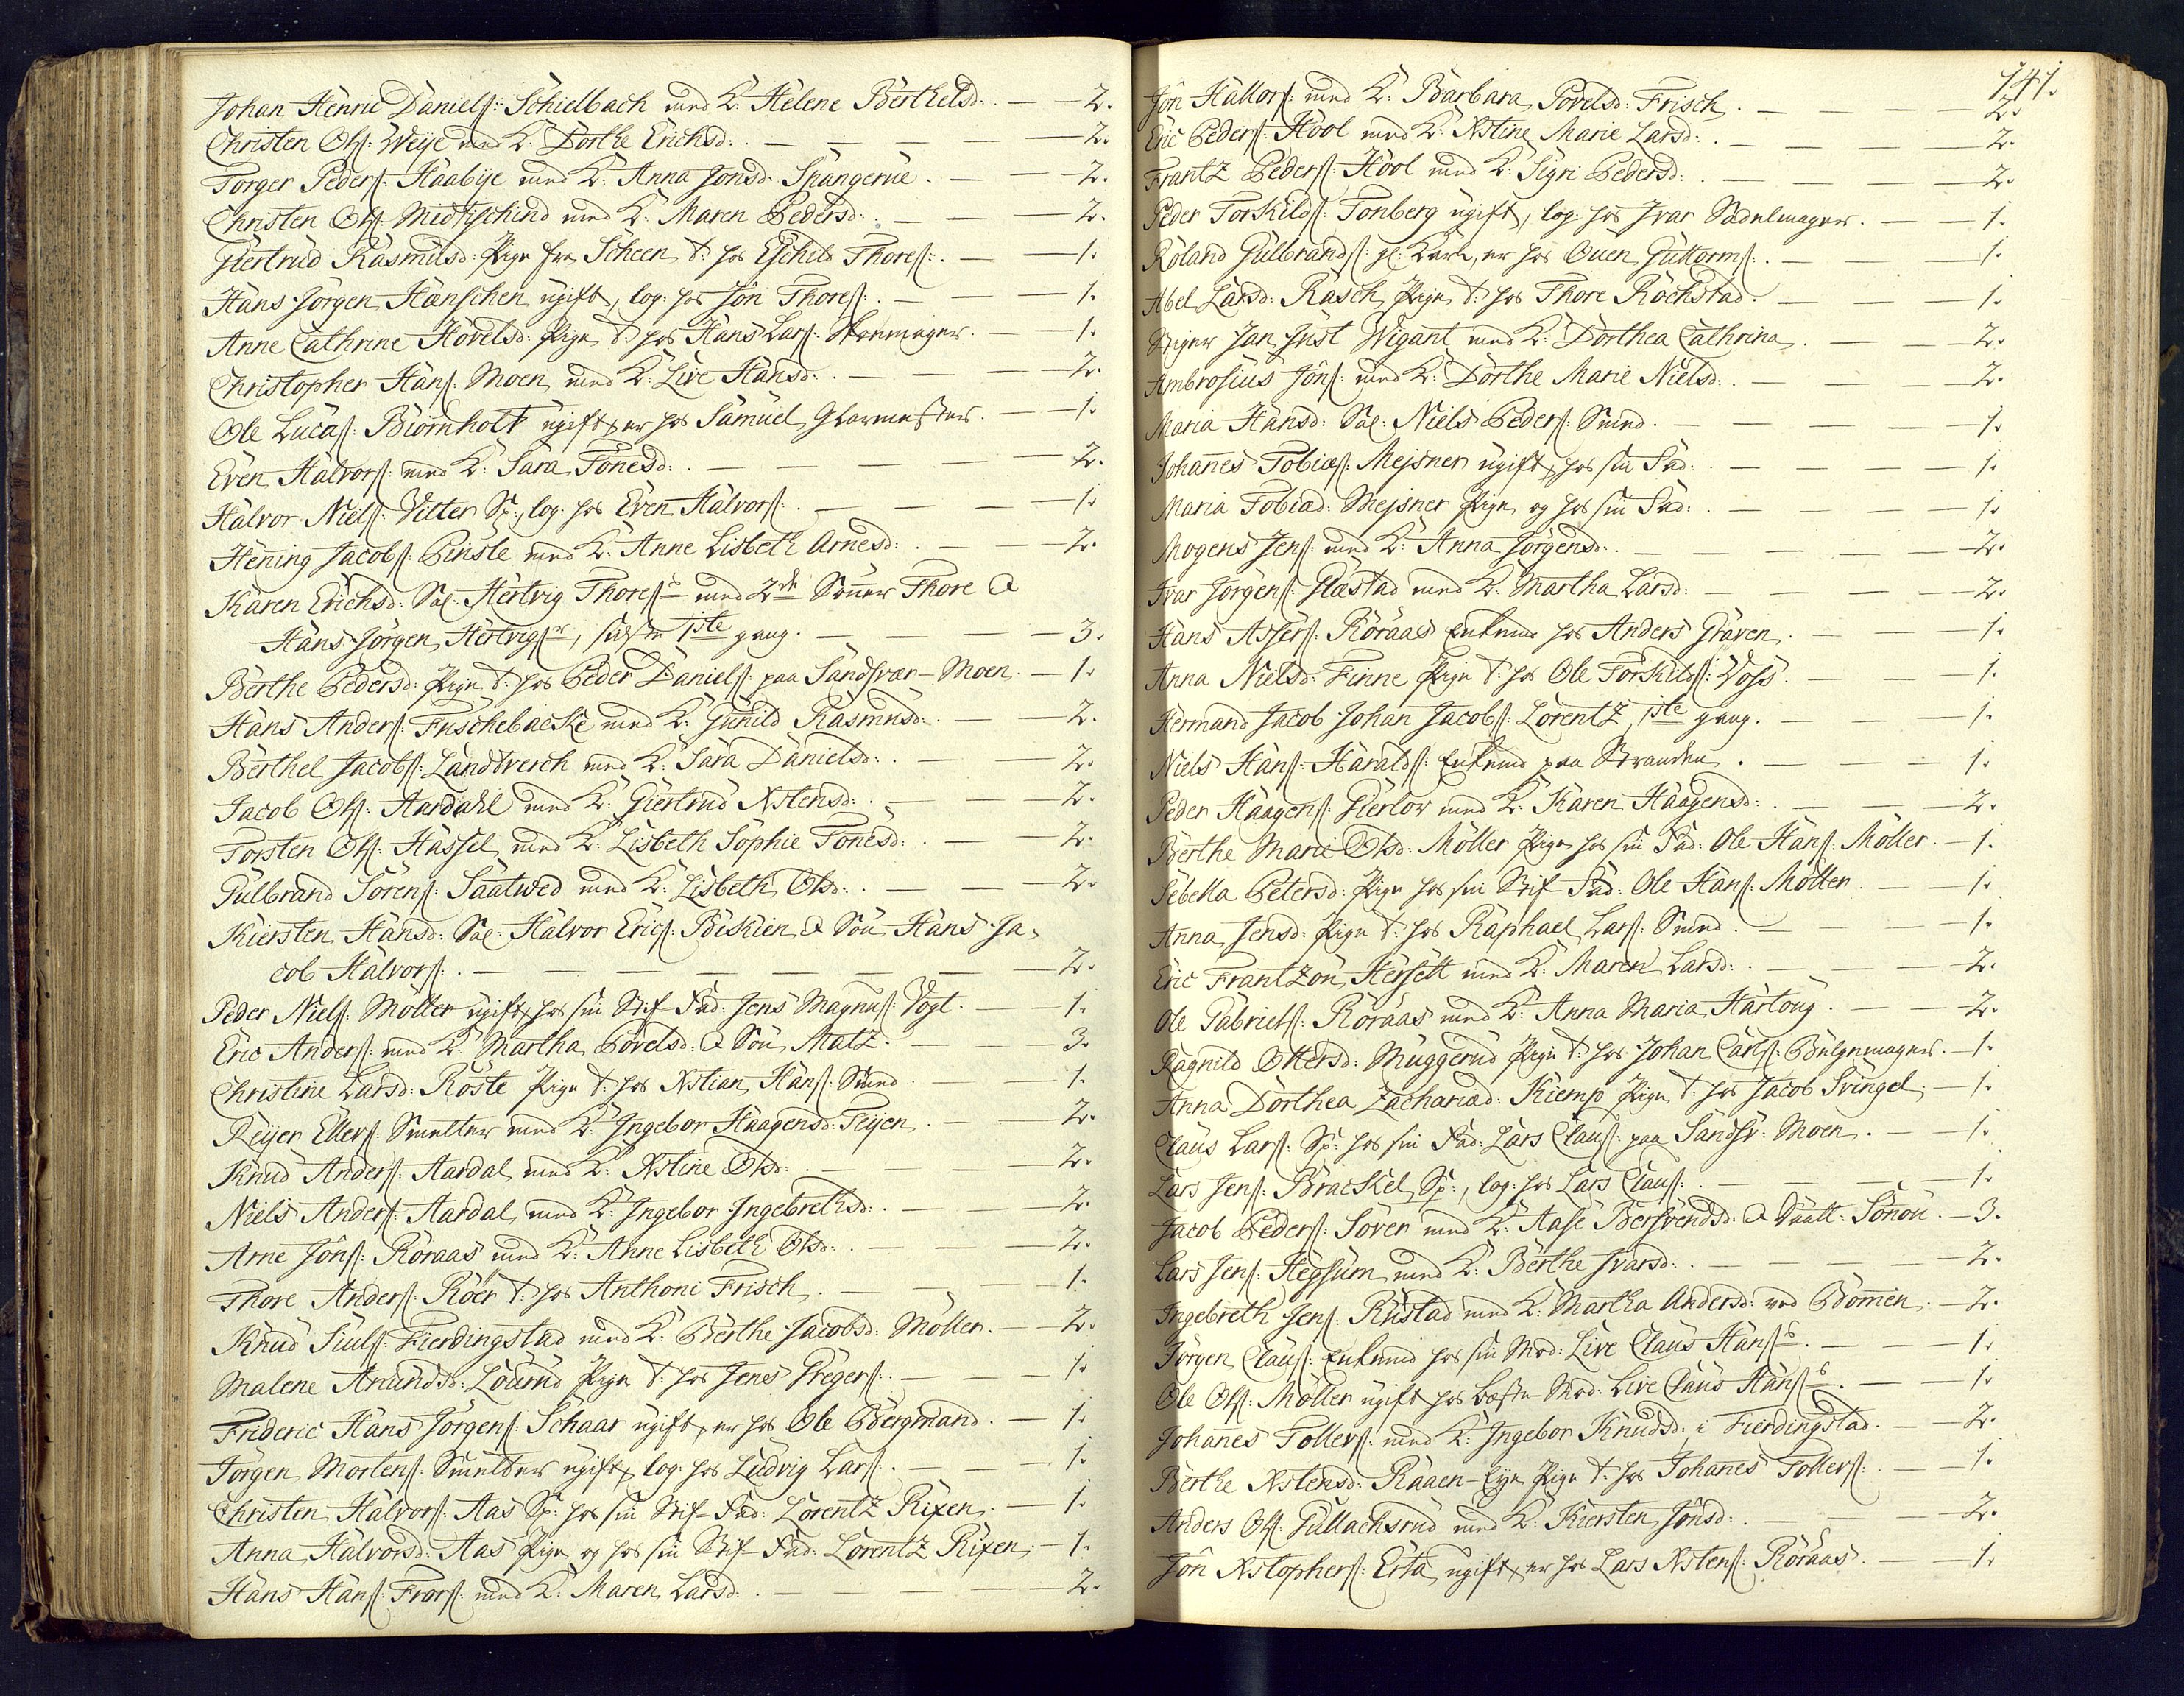 Johan Henric Daniels: Schielbach med K: Helene Berthelsd: . — 2.
Christen Ols: Weije med K: Dorthe Erichsd: . — — — — 2.
Torger Peders: Haabije med K: Anna Jonsd: Spangerue . — — 2.
Christen Ols: Midtschind med K: Maren Pedersd: . — — — 2.
Giertrud Rasmusd: Pige fra Scheen t: hos Eschild Thores: . — — 1.
Hans Jörgen Hænschen ugift, log: hos Jon Thores: . — — — 1.
Anne Cathrine Hovelsd: Pige t: hos Hans Lars: Skoemager. — — 1.
Christopher Hans: Moen med K: Live Hansd: . — — — 2.
Ole Lucas: Biörnholt ugift, er hos Samuel Glarmester. — 1.
Even Halvors: med K: Sara Tönesd: . — — — — 2.
Halvor Niels: Vitter Sp:, log: hos Even Halvors: . — — — 1.
Hening Jacobs: Pinsle med K: Anne Lisbeth Arnesd: . — — 2.
Karen Erichsd: Sal: Hertvig Thores: med 2de Sönner Thore &
Hans Jörgen Hertvigs:, sidste 1ste gang. — — — — 3.
Berthe Pedersd: Pige t: hos Peder Daniels: paa Sandsvær-Moen. — 1.
Hans Anders: Fuschebacke med K: Gunild Rasmusd: . — — 2.
Berthel Jacobs: Landtverch med K: Sara Danielsd: . — — 2.
Jacob Ols: Aardahl med K: Giertrud Xstensd: . — — — 2.
Torsten Ols: Hassel med K: Lisbeth Sophie Tönesd: . — — 2.
Gulbrand Sörens: Saatwed med K: Lisbeth Olsd: . — — — 2.
Kiersten Hansd: Sal: Halvor Erics: Biskien & Sön Hans Ja-
cob Halvors: . — — — — — — — 2.
Peder Niels: Möller ugift, hos sin Stif-Fad: Jens Magnus: Vogt. — 1.
Eric Anders: med K: Martha Povelsd: & Sön Matz. — — 3.
Christine Larsd: Röste Pige t: hos Xstian Hans: Smed. — 1.
Reijer Ellers: Smelter med K: Ingebor Haagensd: Feijen. — — 2.
Knud Anders: Aardal med K: Xstine Olsd: . — — — 2.
Niels Anders: Aardal med K: Ingebor Ingebrethsd: . — — 2.
Arne Jöns: Röraas med K: Anne Lisbeth Olsd: . — — — 2.
Thore Anders: Röer t: hos Anthoni Frisch . — — — 1.
Knud Siuls: Fierdingstad med K: Berthe Jacobsd: Möller. — 2.
Malene Anundsd: Löurud Pige t: hos Jens Gregers: . — — 1.
Frideric Hans Jörgens: Schaar ugift, er hos Ole Bergmand. — 1.
Jörgen Mortens: Smelter ugift, log: hos Ludvig Lars: . — — 1.
Christen Halvors: Aas Sp: hos sin Stif-Fad: Lorentz Rixen. — 1.
Anna Halvorsd: Aas Pige og hos sin Stif-Fad: Lorentz Rixen. — 1.
Hans Hans: Frors: med K: Maren Larsd: . — — — — 2.
741.
Jön Hallors: med K: Barbara Povelsd: Frisch. — — — 2.
Eric Peders: Hool med K: Xstine Marie Larsd: . — — — 2.
Frantz Peders: Hool med K: Sigri Pedersd: . — — — — 2.
Peder Torkilds: Tonberg ugift, log: hos Ivar Sadelmager. — — 1.
Roland Gulbrands: gl: Karl, er hos Ouen Guttorms: . — — — 1.
Abel Larsd: Rasch Pige t: hos Thore Rochstad. — — — 1.
Stiger Jan Just Wigant med K: Dorthea Cathrina . — — — 2.
Ambrosius Jöns: med K: Dorthe Marie Nielsd: . — — — 2.
Maria Hansd: Sal: Niels Peders: Smed. — — — — 1.
Johannes Tobias: Mejsner ugift, hos sin Fad: . — — — 1.
Maria Tobiad: Mejsner Pige og hos sin Fad: . — — — 1.
Mogens Jens: med K: Anna Jörgensd: . — — — — — 2.
Ivar Jörgens: Glæstad med K: Martha Larsd: — — — — 2.
Hans Assers: Röraas Enkemd hos Anders Graven. — — — 1.
Anna Nielsd: Finne Pige t: hos Ole Torkilds: Voss. — — 1.
Hermand Jacob Johan Jacobs: Lorentz 1ste gang. — — — 1.
Niels Hans: Haralds: Enkemd paa Stranden . — — — 1.
Peder Haagens: Gierlow med K: Karen Haagensd: . — — — 2.
Berthe Marie Olsd: Möller Pige hos sin Fad: Ole Hans: Möller. — 1.
Sebella Petersd: Pige hos sin Stif-Fad: Ole Hans: Möller. — — 1.
Anna Jensd: Pige t: hos Raphael Lars: Smed. — — — 1.
Eric Frantzön Hersett med K: Maren Larsd: . — — — 2.
Ole Gabriels: Röraas med K: Anna Maria Hartoug. — — 2.
Ragnild Ottersd: Muggerud Pige t: hos Johan Carls: Bælgemager. — 1.
Anna Dorthea Zachariad: Kiemp Pige t: hos Jacob Svingel. — 1.
Claus Lars: Sp: hos sin Fad: Lars Claus: paa Sandsv: Moen. — — 1.
Lars Jens: Brackel Sp:, log: hos Lars Claus: . — — — — 1.
Jacob Peders: Söver med K: Aase Bersvendsd: & Daatt: Sönöu. — 3.
Lars Jens: Hegsum med K: Berthe Ivarsd: . — — — — 2.
Ingebreth Jens: Rustad med K: Martha Andersd: ved Bommen. — 2.
Jörgen Claus: Enkemd hos sin Mod: Live Claus Hans: . — — 1.
Ole Ols: Möller ugift hos Beste-Mod: Live Claus Hans: . — — 1.
Johannes Tollers: med K: Ingebor Knudsd: i Fierdingstad. — — 2.
Berthe Xstensd: Raaen-Eye Pige t: hos Johannes Tollers: . — — 1.
Anders Ols: Gullachsrud med K: Kiersten Jönsd: . — — — 2.
Jön Xstophers: Erta ugift, er hos Lars Xstens: Röraas. — — 1.